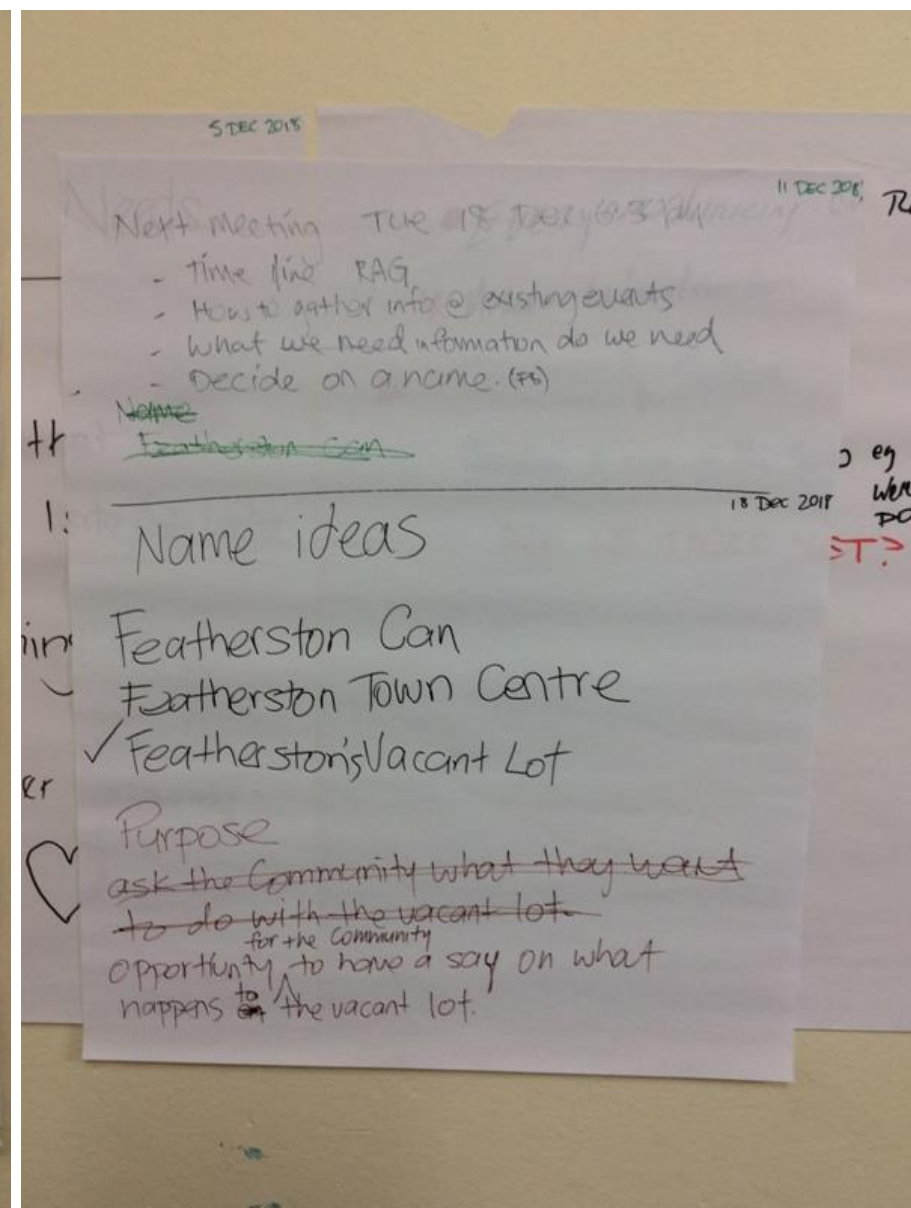 5 DEC 2018
11 DEC 201
Next meeting TUE 18 Dec
- Time line RAG
- How to gather info @ existing events
- What we need information do we need
- Decide on a name. (FB)
Name
Featherston Can
18 Dec 2018
Name ideas
Featherston Can
Featherston Town Centre
✓ Featherston's Vacant Lot
Purpose
ask the Community what they want
to do with the vacant lot.
for the Community
opportiunty to have a say on what
happens to the vacant lot.
eg